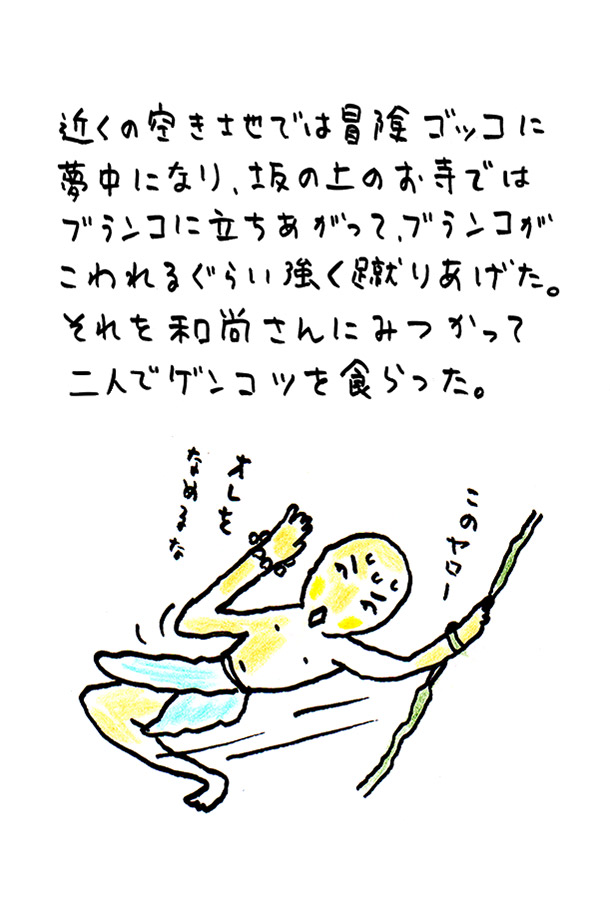 近くの空き地では冒険ゴッコに
夢中になり、坂の上のお寺では
ブランコに立ちあがって、ブランコが
こわれるぐらい強く蹴りあげた。
それを和尚さんにみつかって
二人でゲンコツを食らった。
オレを
なめるな
このヤロー